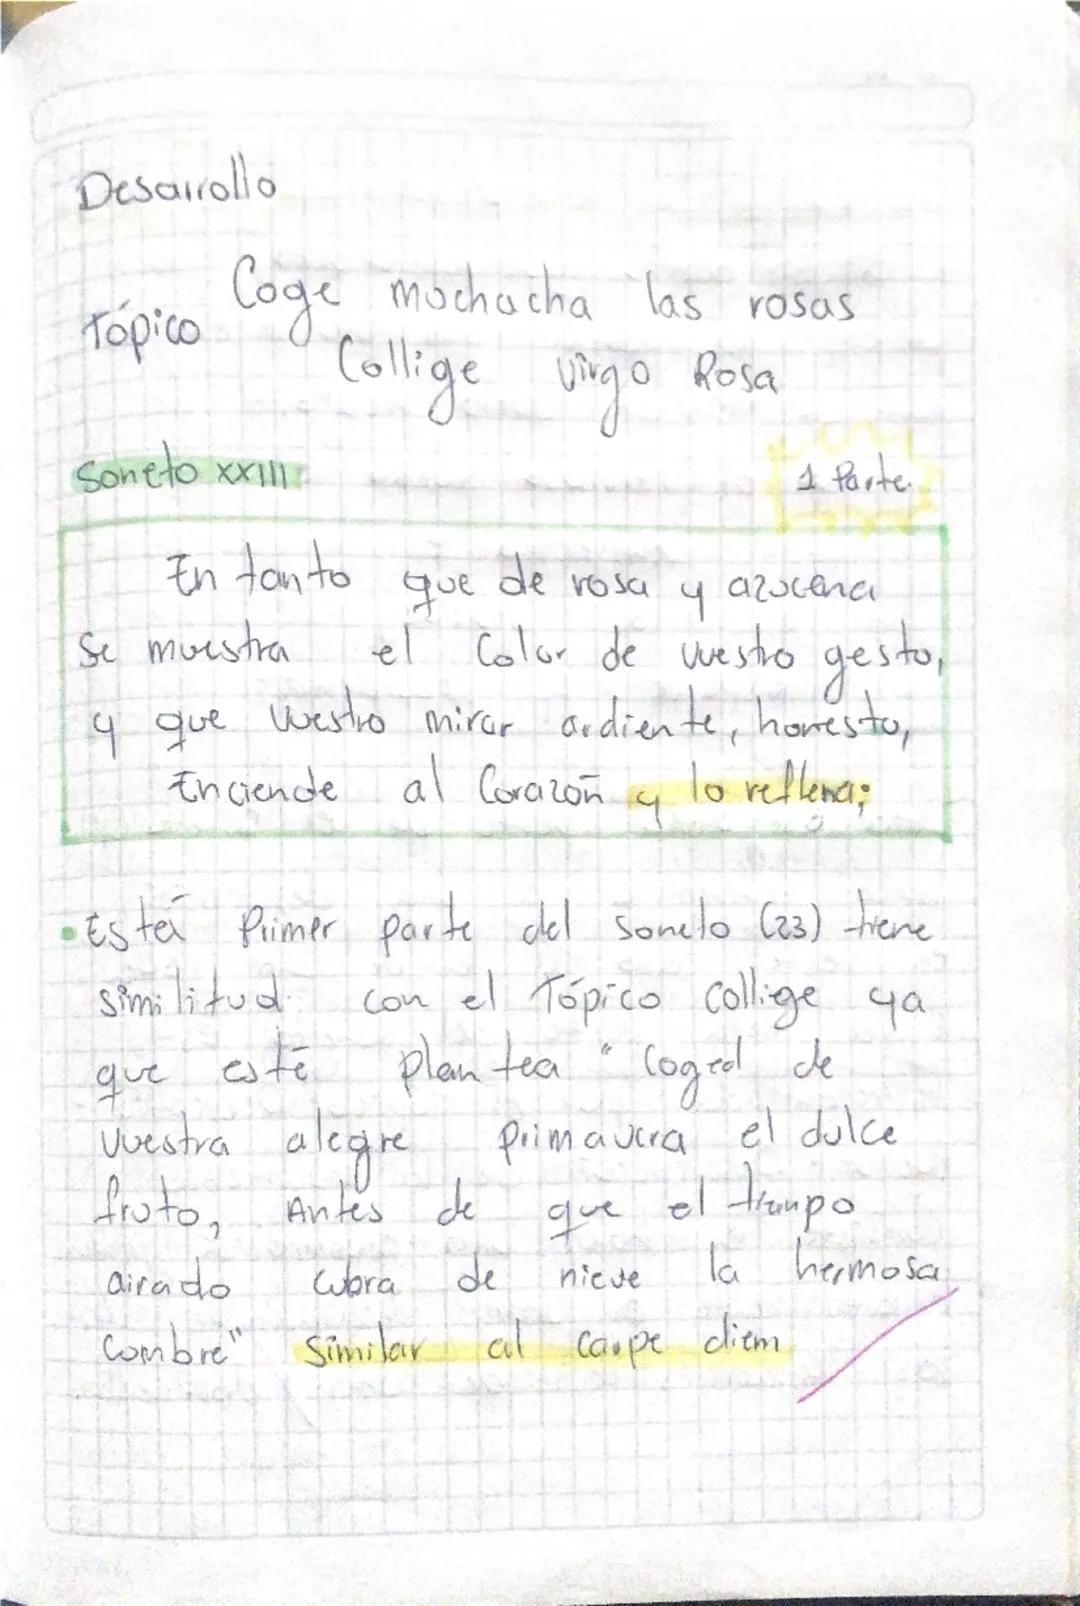 Desarrollo
Coge muchacha las rosas
Tópico
Collige virgo Rosa
Soneto XXIII
1 Parte.
En tanto que de rosa y azucena
Se muestra el Color de vuestro gesto,
y que vuestro mirar ardiente, honesto,
Enciende al Corazón y lo reflena;
• Está Primer parte del soneto (23) tiene
similitud con el Tópico collige ya
que esté plantea "Coged de
vuestra alegre primavera el dulce
fruto, Antes de que el tiempo
airado cubra de nieve la hermosa
Combre" Similar al carpe diem